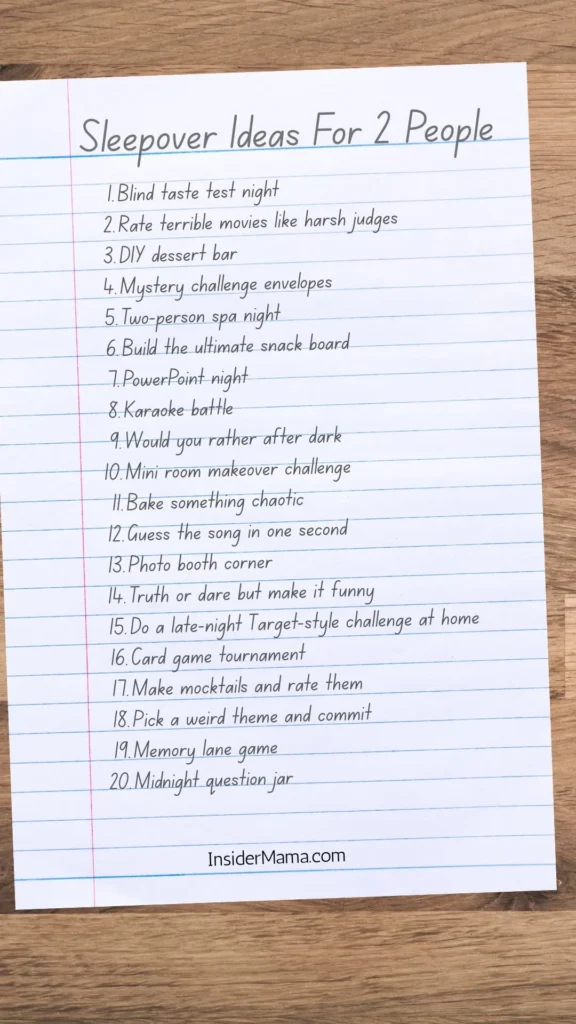 Sleepover Ideas For 2 People
1. Blind taste test night
2. Rate terrible movies like harsh judges
3. DIY dessert bar
4. Mystery challenge envelopes
5. Two-person spa night
6. Build the ultimate snack board
7. PowerPoint night
8. Karaoke battle
9. Would you rather after dark
10. Mini room makeover challenge
11. Bake something chaotic
12. Guess the song in one second
13. Photo booth corner
14. Truth or dare but make it funny
15. Do a late-night Target-style challenge at home
16. Card game tournament
17. Make mocktails and rate them
18. Pick a weird theme and commit
19. Memory lane game
20. Midnight question jar
InsiderMama.com